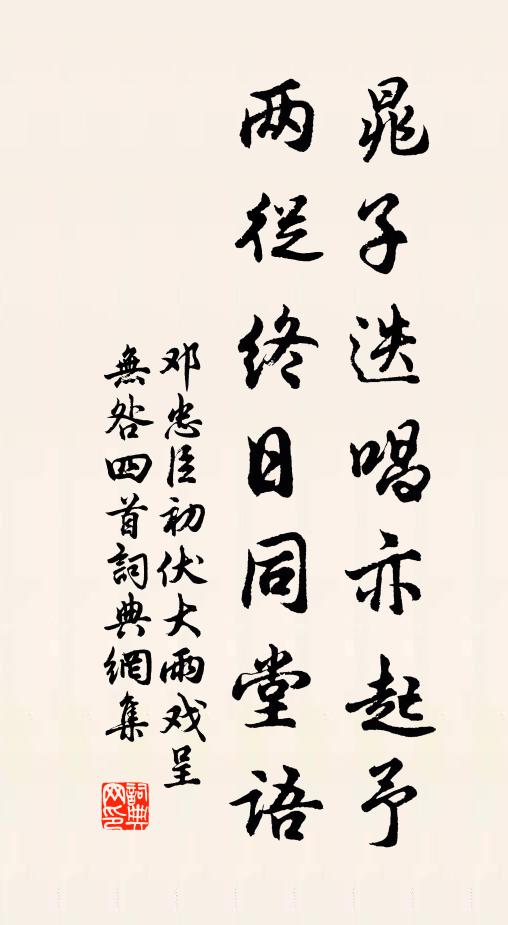 晁子迭唱亦起予
两從終日同堂語
邓忠臣初伏大雨戏呈
無咎四首詞典網集
詞典网印